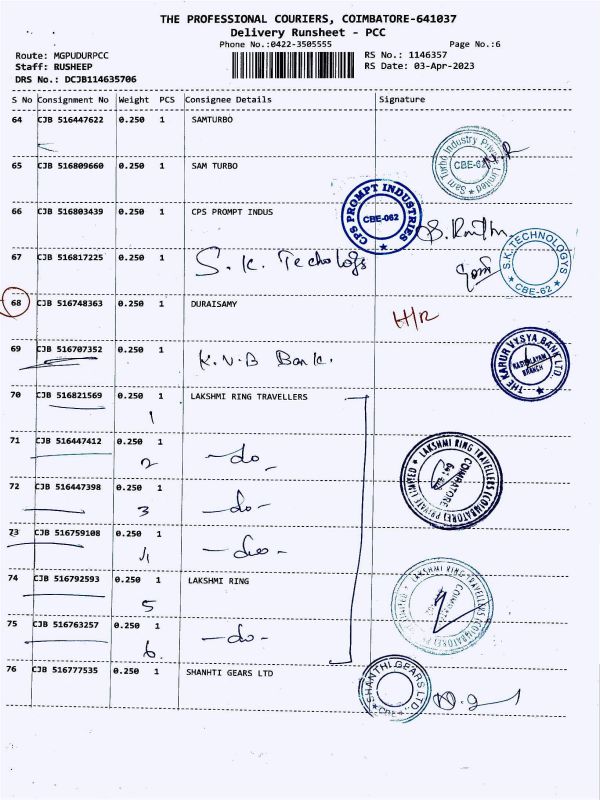 THE PROFESSIONAL COURIERS, COIMBATORE-641037
Delivery Runsheet - PCC
Phone No.:0422-3505555 Page No.:6
Route: MGPUDURPCC RS No.: 1146357
Staff: RUSHEEP RS Date: 03-Apr-2023
DRS No.: DCJB114635706
S No Consignment No Weight PCS Consignee Details Signature
64 CJB 516447622 0.250 1 SAMTURBO
Sam Turbo Industry Private Limited
65 CJB 516809660 0.250 1 SAM TURBO
66 CJB 516803439 0.250 1 CPS PROMPT INDUS
CPS PROMPT INDUSTRIES CBE-062
67 CJB 516817225 0.250 1 S.K. Techologs
S.K. TECHNOLOGYS CBE-62
68 CJB 516748363 0.250 1 DURAISAMY H/R
69 CJB 516707352 0.250 1 K.V.B Bank.
THE KARUR VYSYA BANK LTD. BRANCH
70 CJB 516821569 0.250 1 LAKSHMI RING TRAVELLERS
1
71 CJB 516447412 0.250 1 -do-
2
LAKSHMI RING TRAVELLERS (COIMBATORE) PRIVATE LIMITED COIMBATORE
72 CJB 516447398 0.250 1 -do-
3
73 CJB 516759108 0.250 1 -do-
4
74 CJB 516792593 0.250 1 LAKSHMI RING
5
LAKSHMI RING TRAVELLERS (COIMBATORE) PRIVATE LIMITED
75 CJB 516763257 0.250 1 -do-
6
76 CJB 516777535 0.250 1 SHANHTI GEARS LTD
SHANTHI GEARS LTD., CBE